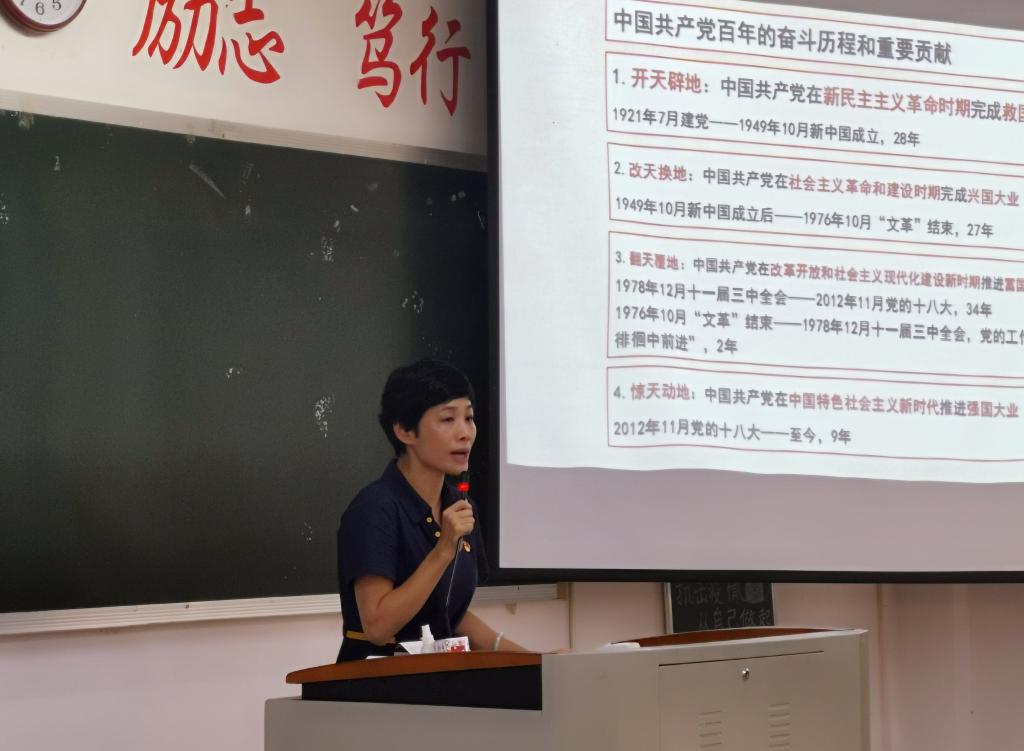 7 6 5
励志 笃行
中国共产党百年的奋斗历程和重要贡献
1. 开天辟地：中国共产党在新民主主义革命时期完成救国
1921年7月建党——1949年10月新中国成立，28年
2. 改天换地：中国共产党在社会主义革命和建设时期完成兴国大业
1949年10月新中国成立后——1976年10月“文革”结束，27年
3. 翻天覆地：中国共产党在改革开放和社会主义现代化建设新时期推进富国
1978年12月十一届三中全会——2012年11月党的十八大，34年
1976年10月“文革”结束——1978年12月十一届三中全会，党的工作
徘徊中前进”，2年
4. 惊天动地：中国共产党在中国特色社会主义新时代推进强国大业
2012年11月党的十八大——至今，9年
从自己做起